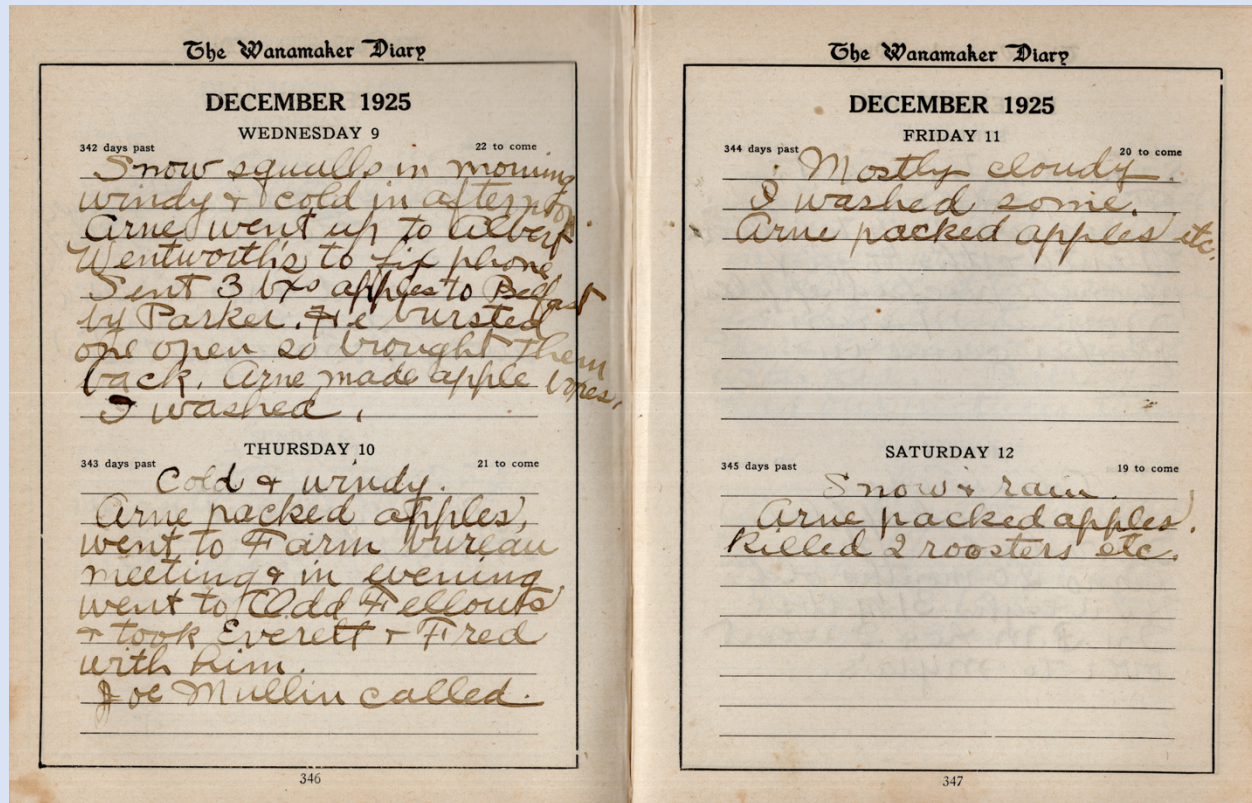 The Wanamaker Diary
DECEMBER 1925
WEDNESDAY 9
342 days past 22 to come
Snow squalls in morning
windy & cold in afternoon.
Arne went up to Albert
Wentworth's to fix phone
Sent 3 bxs apples to Belfast
by Parker. He bursted
one open so brought them
back. Arne made apple boxes.
I washed.
THURSDAY 10
343 days past 21 to come
Cold & windy.
Arne packed apples,
went to Farm bureau
meeting & in evening
went to Odd Fellows
& took Everett & Fred
with him.
Joe Mullin called.
346
The Wanamaker Diary
DECEMBER 1925
FRIDAY 11
344 days past 20 to come
Mostly cloudy.
I washed some.
Arne packed apples etc.
SATURDAY 12
345 days past 19 to come
Snow & rain.
Arne packed apples.
Killed 2 roosters etc.
347